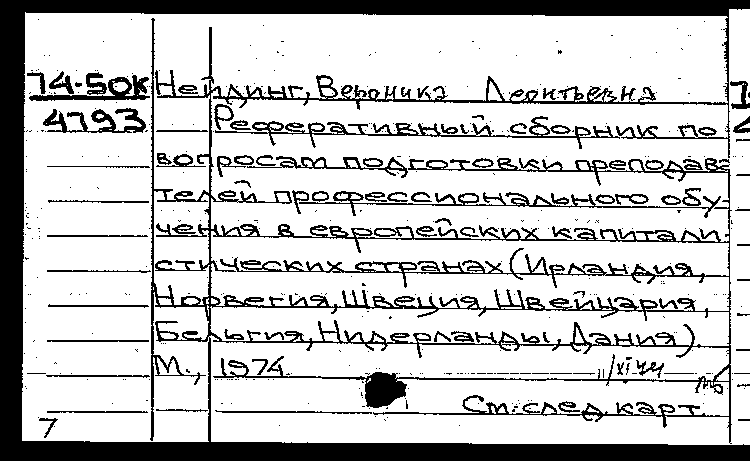 74-50К Нейдинг, Вероника Леонтьевна
4793 Реферативный сборник по
вопросам подготовки преподава-
телей профессионального обу-
чения в европейских капитали-
стических странах (Ирландия,
Норвегия, Швеция, Швейцария,
Бельгия, Нидерланды, Дания).
М., 1974
См. след. карт.
7